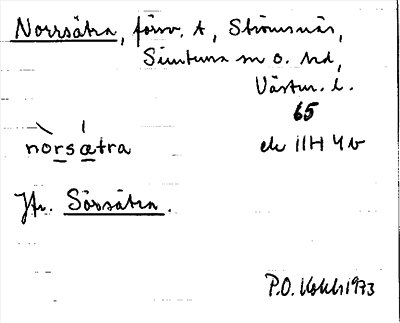 Norrsätra, förv. t, Strömsnäs,
Simtuna sn o. hd,
Västm. l.
65
norsætra ek 11H 4b
Jfr. Sörsätra.
P.O. 1973